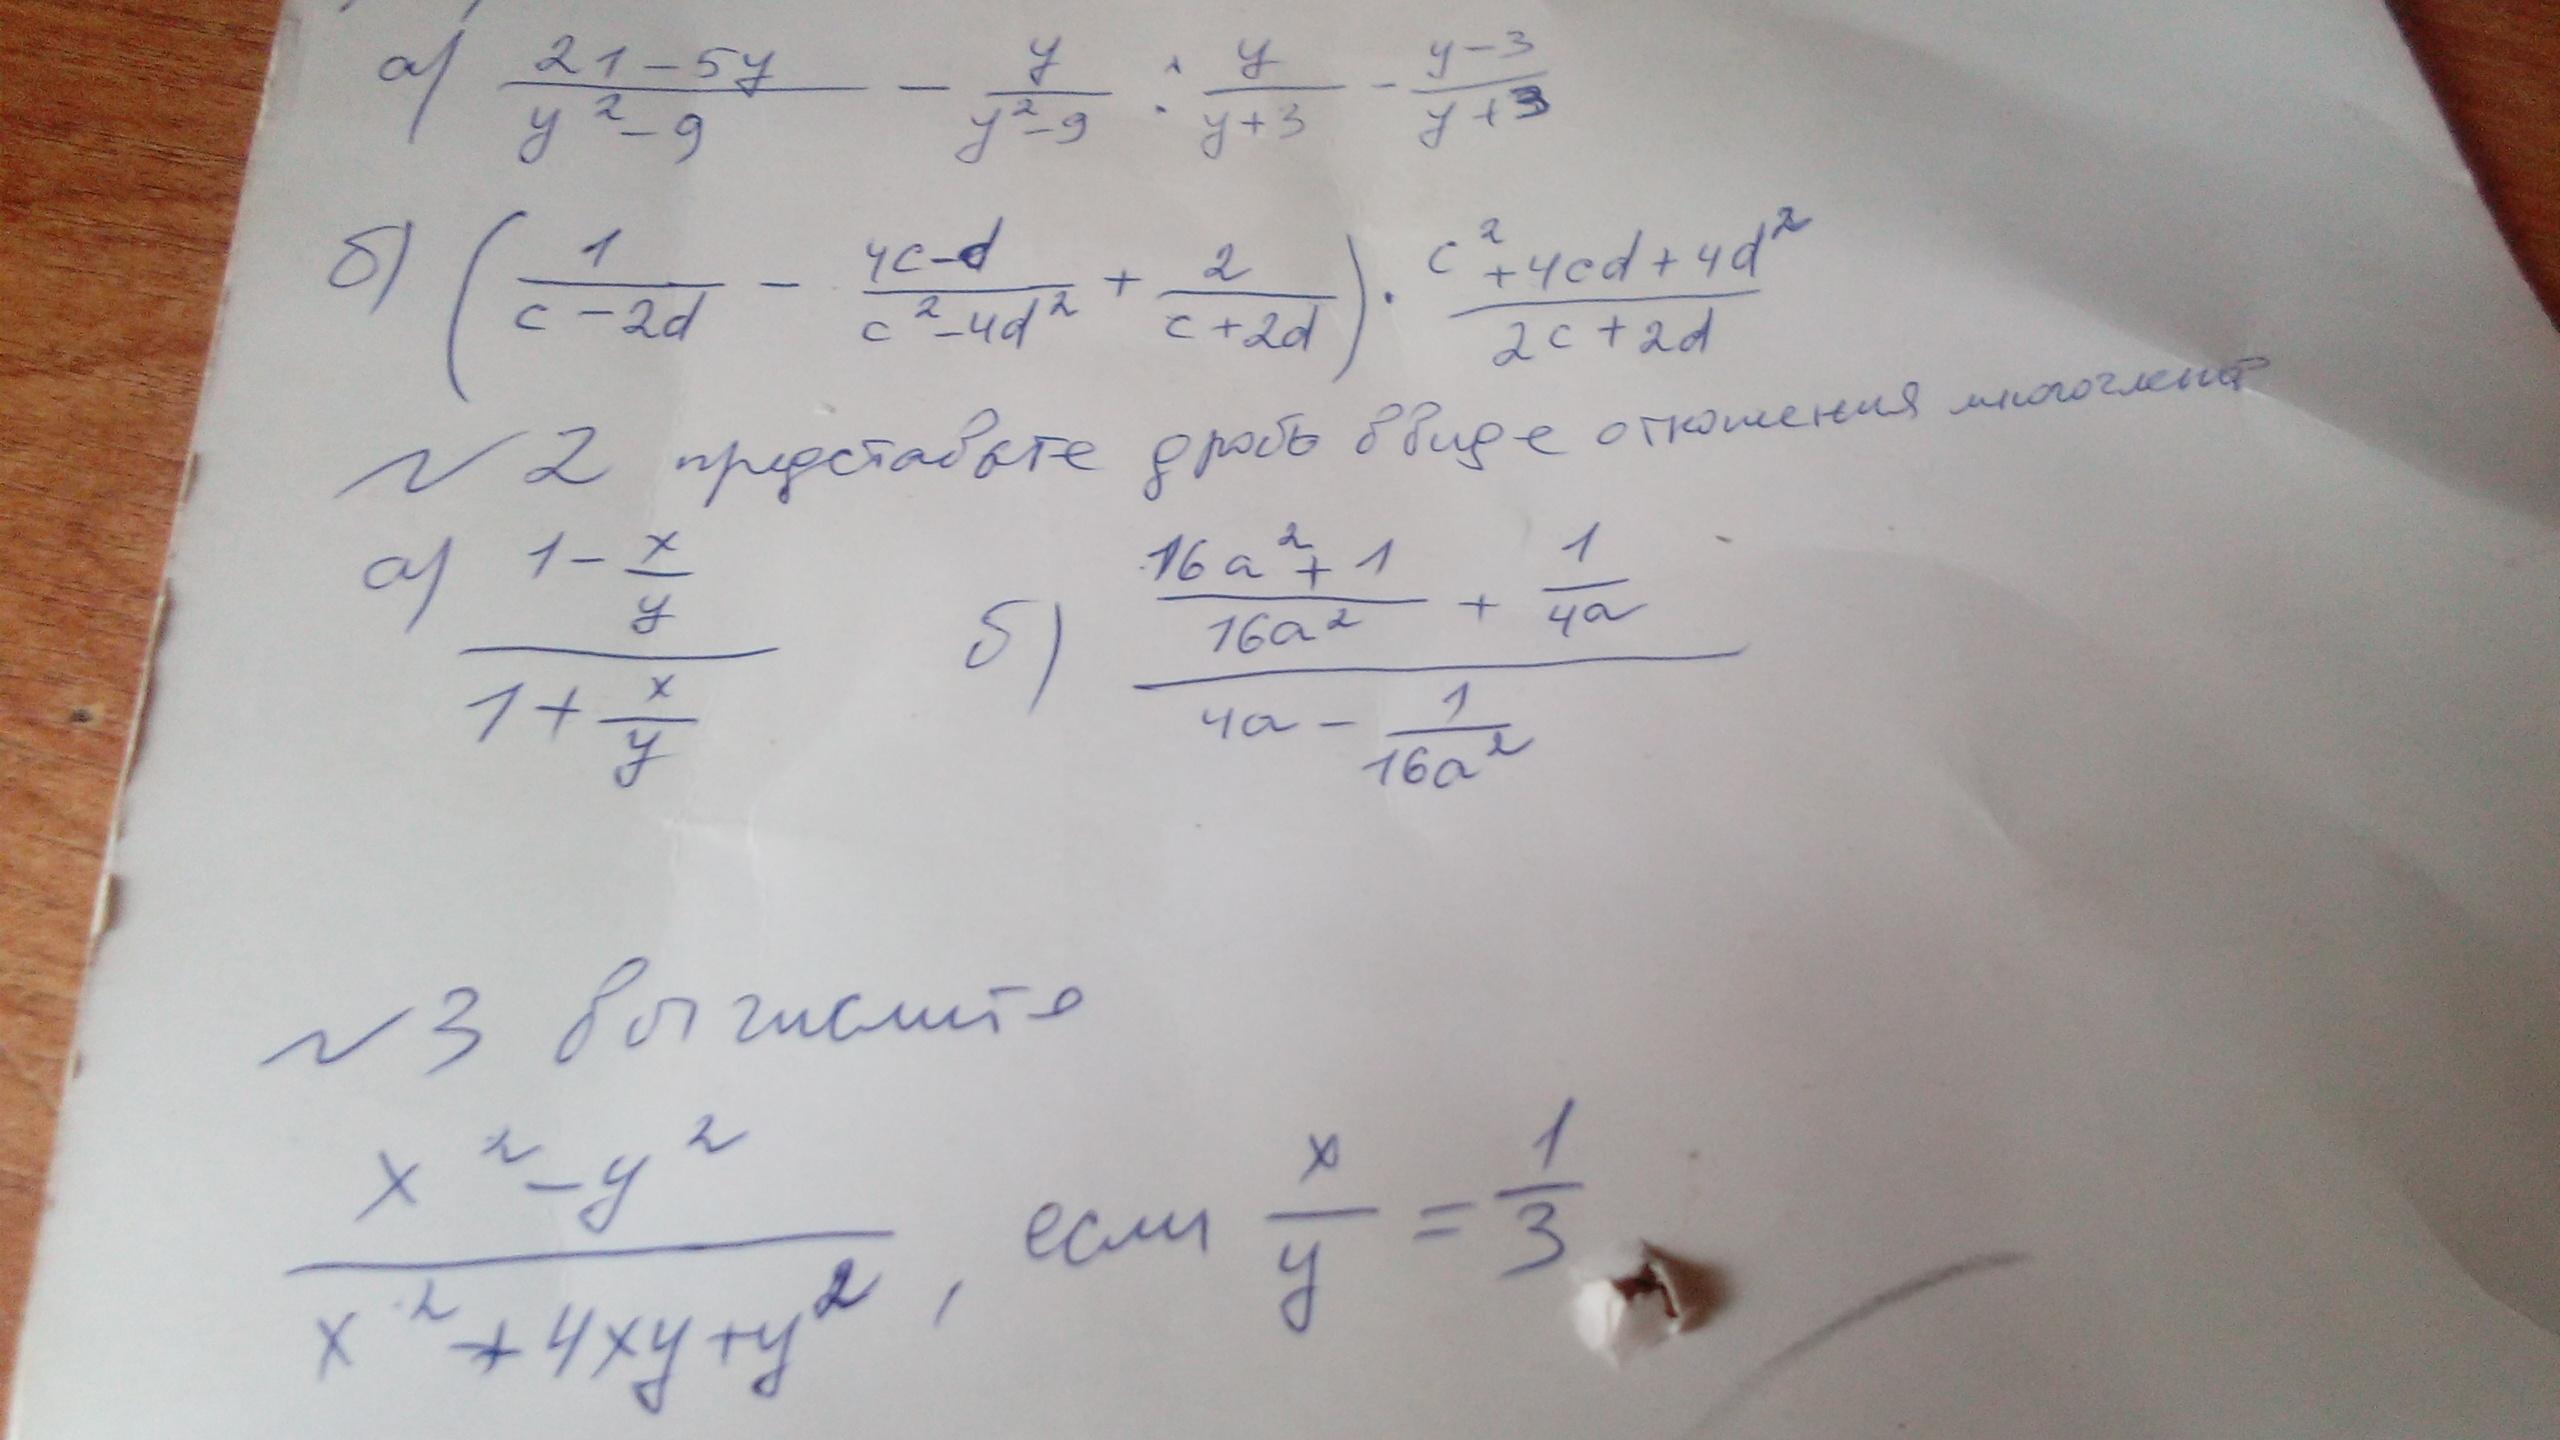 а) (21-5y)/(y²-9) - y/(y²-9) : y/(y+3) - (y-3)/(y+3)
б) (1/(c-2d) - (4c-d)/(c²-4d²) + 2/(c+2d)) · (c²+4cd+4d²)/(2c+2d)
№2 представьте дробь в виде отношения многочлена
а) (1 - x/y)/(1 + x/y) б) ((16a²+1)/(16a²) + 1/(4a))/(4a - 1/(16a²))
№3 вычислите
(x²-y²)/(x²+4xy+y²), если x/y = 1/3